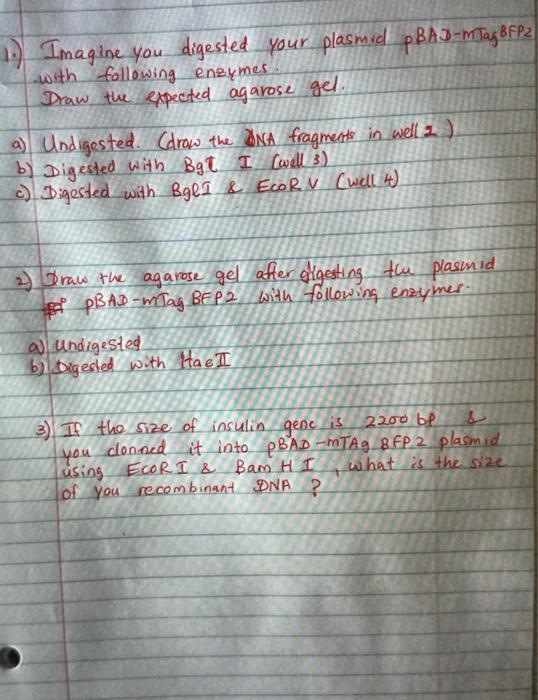 1.) Imagine you digested your plasmid pBAD-mTagBFP2
with following enzymes.
Draw the expected agarose gel.
a) Undigested. (draw the DNA fragments in well 2)
b) Digested with Bgl I (well 3)
c) Digested with BglI & EcoR V (well 4)
2) Draw the agarose gel after digesting the plasmid
pBAD-mTag BFP2 with following enzymes.
a) undigested
b) Digested with HaeII
3) If the size of insulin gene is 2200 bp &
you clonned it into pBAD-mTAg BFP2 plasmid
using EcoR I & Bam H I, what is the size
of you recombinant DNA ?